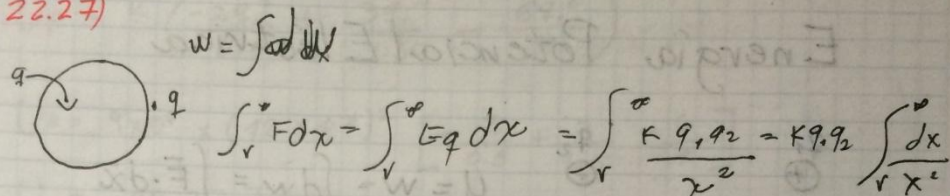 22.27)
w = ∫ dx
q q ∫_r^∞ Fdx = ∫_r^∞ Eq dx = ∫_r^∞ K q₁q₂ / x² = Kq₁q₂ ∫_r^∞ dx / x²